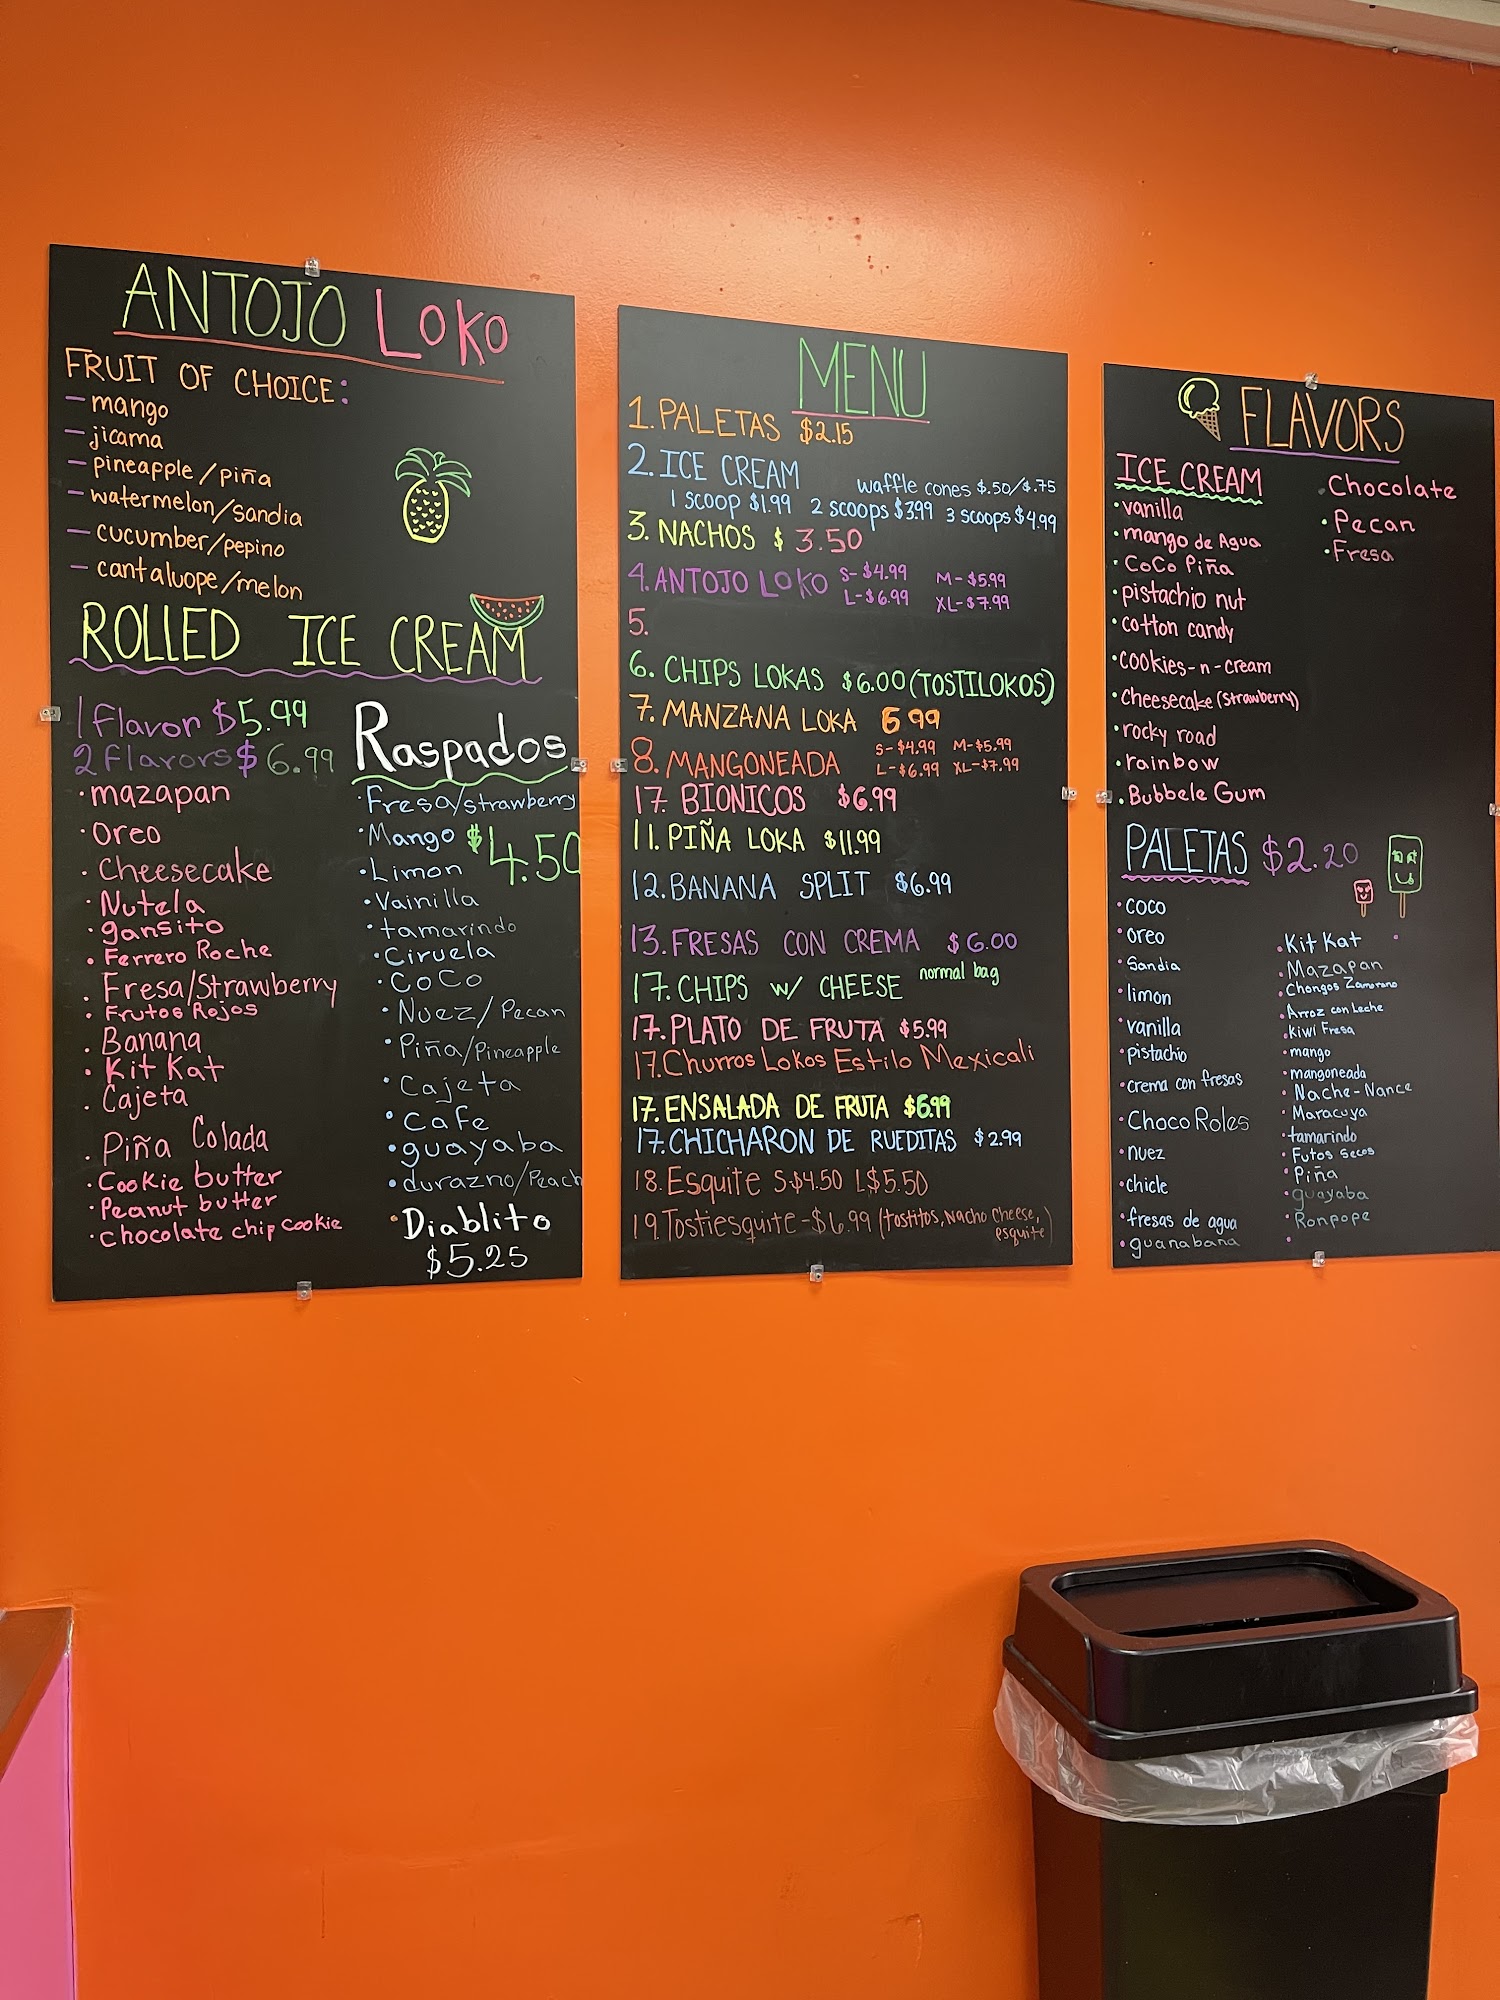 ANTOJO LOKO
FRUIT OF CHOICE:
- mango
- jicama
- pineapple/piña
- watermelon/sandia
- cucumber/pepino
- cantaluope/melon
ROLLED ICE CREAM
1 Flavor $5.99
2 Flavors $6.99
• mazapan
• oreo
• Cheesecake
• Nutela
• gansito
• Ferrero Roche
• Fresa/Strawberry
• Frutos Rojos
• Banana
• Kit Kat
• Cajeta
• Piña Colada
• Cookie butter
• Peanut butter
• chocolate chip cookie
Raspados
• Fresa/strawberry
• Mango $4.50
• Limon
• Vainilla
• tamarindo
• Ciruela
• CoCo
• Nuez/Pecan
• Piña/Pineapple
• Cajeta
• Cafe
• guayaba
• durazno/Peach
• Diablito
$5.25
MENU
1. PALETAS $2.15
2. ICE CREAM waffle cones $.50/$.75
1 scoop $1.99 2 scoops $3.99 3 scoops $4.99
3. NACHOS $3.50
4. ANTOJO LOKO S-$4.99 M-$5.99
L-$6.99 XL-$7.99
5.
6. CHIPS LOKAS $6.00 (TOSTILOKOS)
7. MANZANA LOKA 6.99
8. MANGONEADA S-$4.99 M-$5.99
L-$6.99 XL-$7.99
17. BIONICOS $6.99
11. PIÑA LOKA $11.99
12. BANANA SPLIT $6.99
13. FRESAS CON CREMA $6.00
17. CHIPS w/ CHEESE normal bag
17. PLATO DE FRUTA $5.99
17. Churros Lokos Estilo Mexicali
17. ENSALADA DE FRUTA $6.99
17. CHICHARON DE RUEDITAS $2.99
18. Esquite S$4.50 L$5.50
19. Tostiesquite-$6.99 (tostitos, Nacho Cheese,
esquite)
FLAVORS
ICE CREAM
• vanilla
• mango de Agua
• CoCo Piña
• pistachio nut
• cotton candy
• cookies-n-cream
• cheesecake (strawberry)
• rocky road
• rainbow
• Bubbele Gum
• Chocolate
• Pecan
• Fresa
PALETAS $2.20
• coco
• oreo
• Sandia
• limon
• vanilla
• pistachio
• crema con fresas
• Choco Roles
• nuez
• chicle
• fresas de agua
• guanabana
• Kit Kat
• Mazapan
• Chongos Zamorano
• Arroz con Leche
• Kiwi Fresa
• mango
• mangoneada
• Nache-Nance
• Maracuya
• tamarindo
• Futos Secos
• Piña
• guayaba
• Ronpope